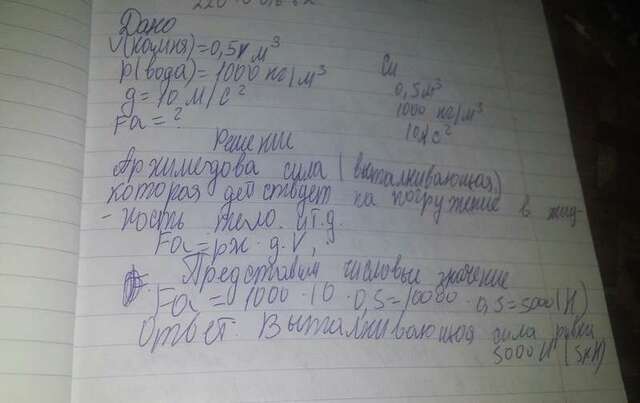 Дано
V(камня)=0,5 м³
р(вода)=1000 кг/м³
g=10 м/с²
Fа=?
Си
0,5м³
1000 кг/м³
10м/с²
Решение
Архимедова сила (выталкивающая)
которая действует на погружение в жид-
-кость тело. и т.д.
Fa=рж·g·V,
Представим числовые значение
Fa=1000·10·0,5=10000·0,5=5000(Н)
Ответ. Выталкивающая сила
5000Н (5кН)